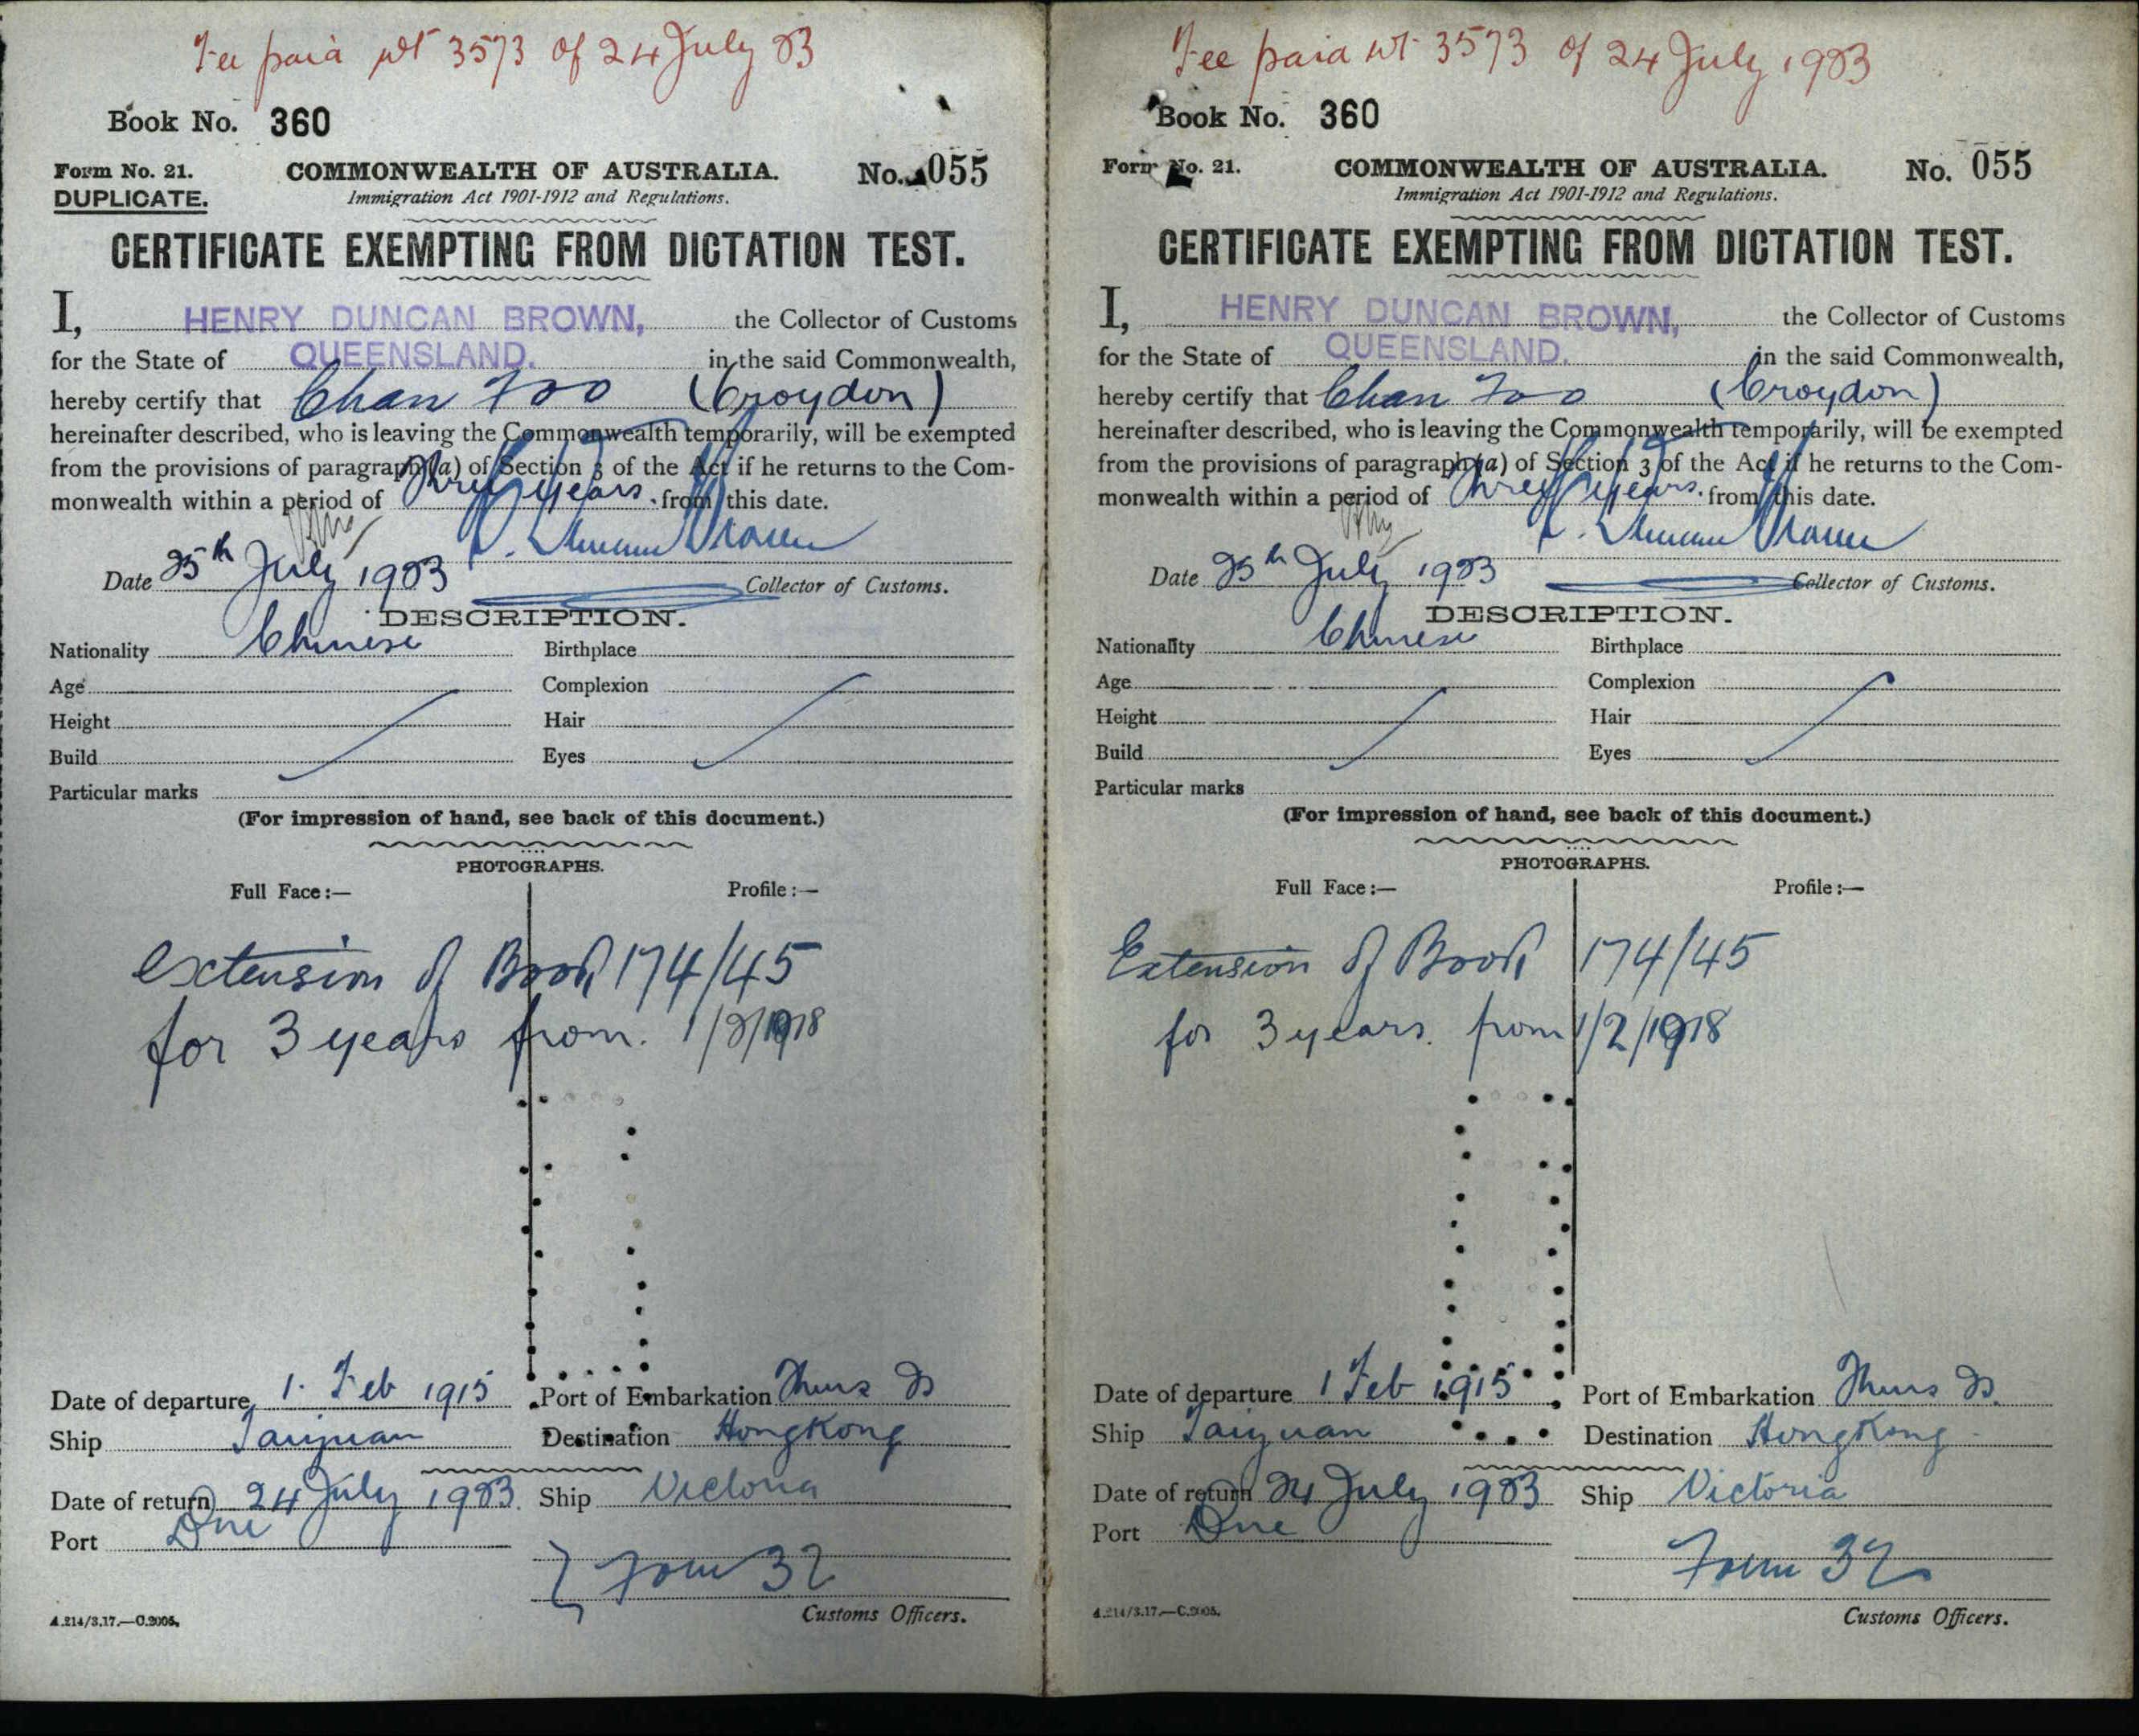 Fee paid 3573 of 24 July 23
Book No. 360
Form No. 21.
DUPLICATE.
COMMONWEALTH OF AUSTRALIA.
No. 055
Immigration Act 1901-1912 and Regulations.
CERTIFICATE EXEMPTING FROM DICTATION TEST.
I, HENRY DUNCAN BROWN, the Collector of Customs
for the State of QUEENSLAND. in the said Commonwealth,
hereby certify that Chan Foo (Croydon)
hereinafter described, who is leaving the Commonwealth temporarily, will be exempted
from the provisions of paragraph (a) of Section 3 of the Act if he returns to the Com-
monwealth within a period of Three years. from this date.
H. Duncan Brown
Date 25th July 1923
Collector of Customs.
DESCRIPTION.
Nationality Chinese Birthplace
Age Complexion
Height Hair
Build Eyes
Particular marks
(For impression of hand, see back of this document.)
PHOTOGRAPHS.
Full Face:— Profile:—
extension of Book 174/45
for 3 years from. 1/2/1918
Date of departure 1. Feb 1915 Port of Embarkation Thurs Is
Ship Taiyuan Destination Hongkong
Date of return 24 July 1923. Ship Victoria
Port Bne
} Form 32
Customs Officers.
A.214/3.17.—C.2005.
Fee paid 3573 of 24 July 1923
Book No. 360
Form No. 21.
COMMONWEALTH OF AUSTRALIA.
No. 055
Immigration Act 1901-1912 and Regulations.
CERTIFICATE EXEMPTING FROM DICTATION TEST.
I, HENRY DUNCAN BROWN, the Collector of Customs
for the State of QUEENSLAND. in the said Commonwealth,
hereby certify that Chan Foo (Croydon)
hereinafter described, who is leaving the Commonwealth temporarily, will be exempted
from the provisions of paragraph (a) of Section 3 of the Act if he returns to the Com-
monwealth within a period of Three years. from this date.
H. Duncan Brown
Date 25th July 1923
Collector of Customs.
DESCRIPTION.
Nationality Chinese Birthplace
Age Complexion
Height Hair
Build Eyes
Particular marks
(For impression of hand, see back of this document.)
PHOTOGRAPHS.
Full Face:— Profile:—
Extension of Book 174/45
for 3 years. from 1/2/1918
Date of departure 1 Feb 1915 Port of Embarkation Thurs Is.
Ship Taiyuan Destination Hong Kong
Date of return 24 July 1923 Ship Victoria
Port Bne
Form 32
Customs Officers.
A.214/3.17.—C.2005.